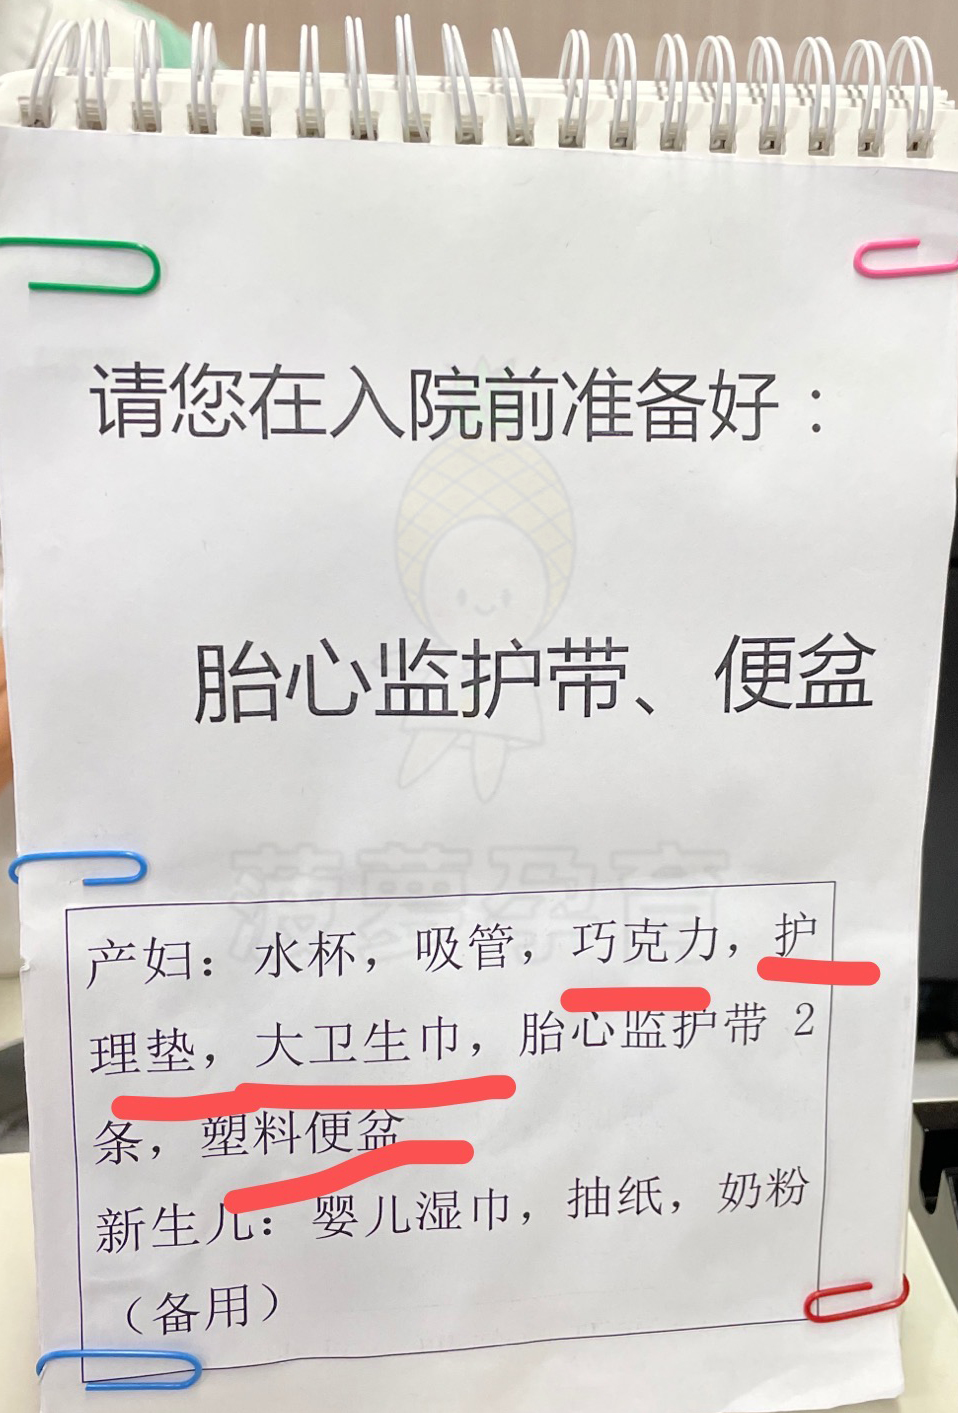 请您在入院前准备好：
胎心监护带、便盆
菠萝孕育
产妇：水杯，吸管，巧克力，护
理垫，大卫生巾，胎心监护带 2
条，塑料便盆
新生儿：婴儿湿巾，抽纸，奶粉
（备用）